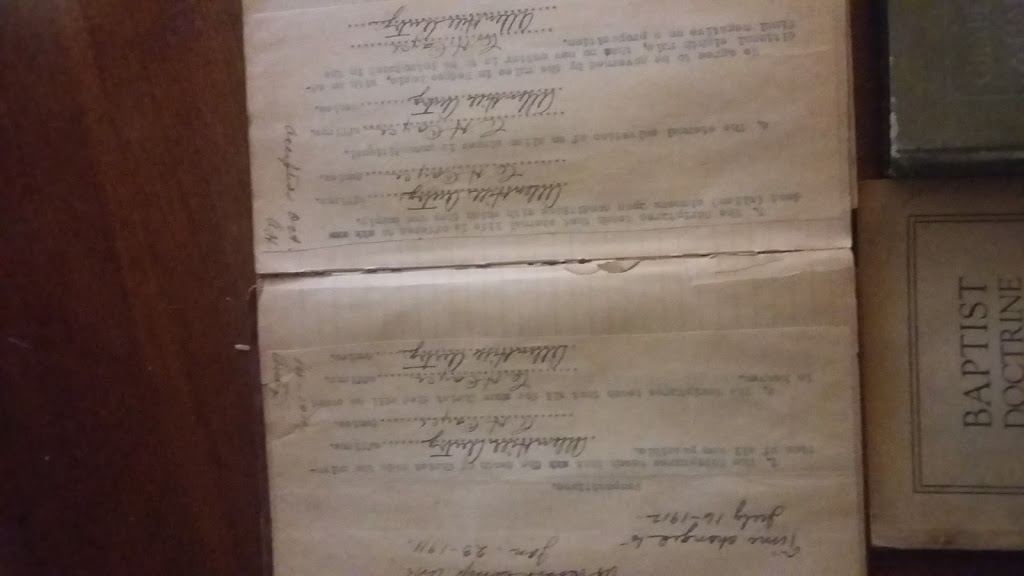 Jan. 23-1911.
Time changed to
July 16-1912
Propositions.
1. The Scriptures teach that the death of Christ made the salva-
tion of all men possible.
Allen Hill Autry affirms.
C. H. Cayce denies.
2. The Scriptures teach that all for whom Christ died will be saved
in heaven.
C. H. Cayce affirms.
Allen Hill Autry denies.
3. The Scriptures teach that eternal life is offered to all
dead (alien) sinners upon conditions with which they
Allen Hill Autry affirms.
C. H. Cayce denies.
4. The eternal salvation of an alien sinner is unconditional.
C. H. Cayce affirms.
Allen Hill Autry denies.
We agree to be governed by the rules in Hedges Logic, with an ad-
ditional eighth rule, that no new matter is to be introduced in the
final negative on a proposition.
C. H. Cayce
Allen Hill Autry
BAPTIST
DOCTRINE